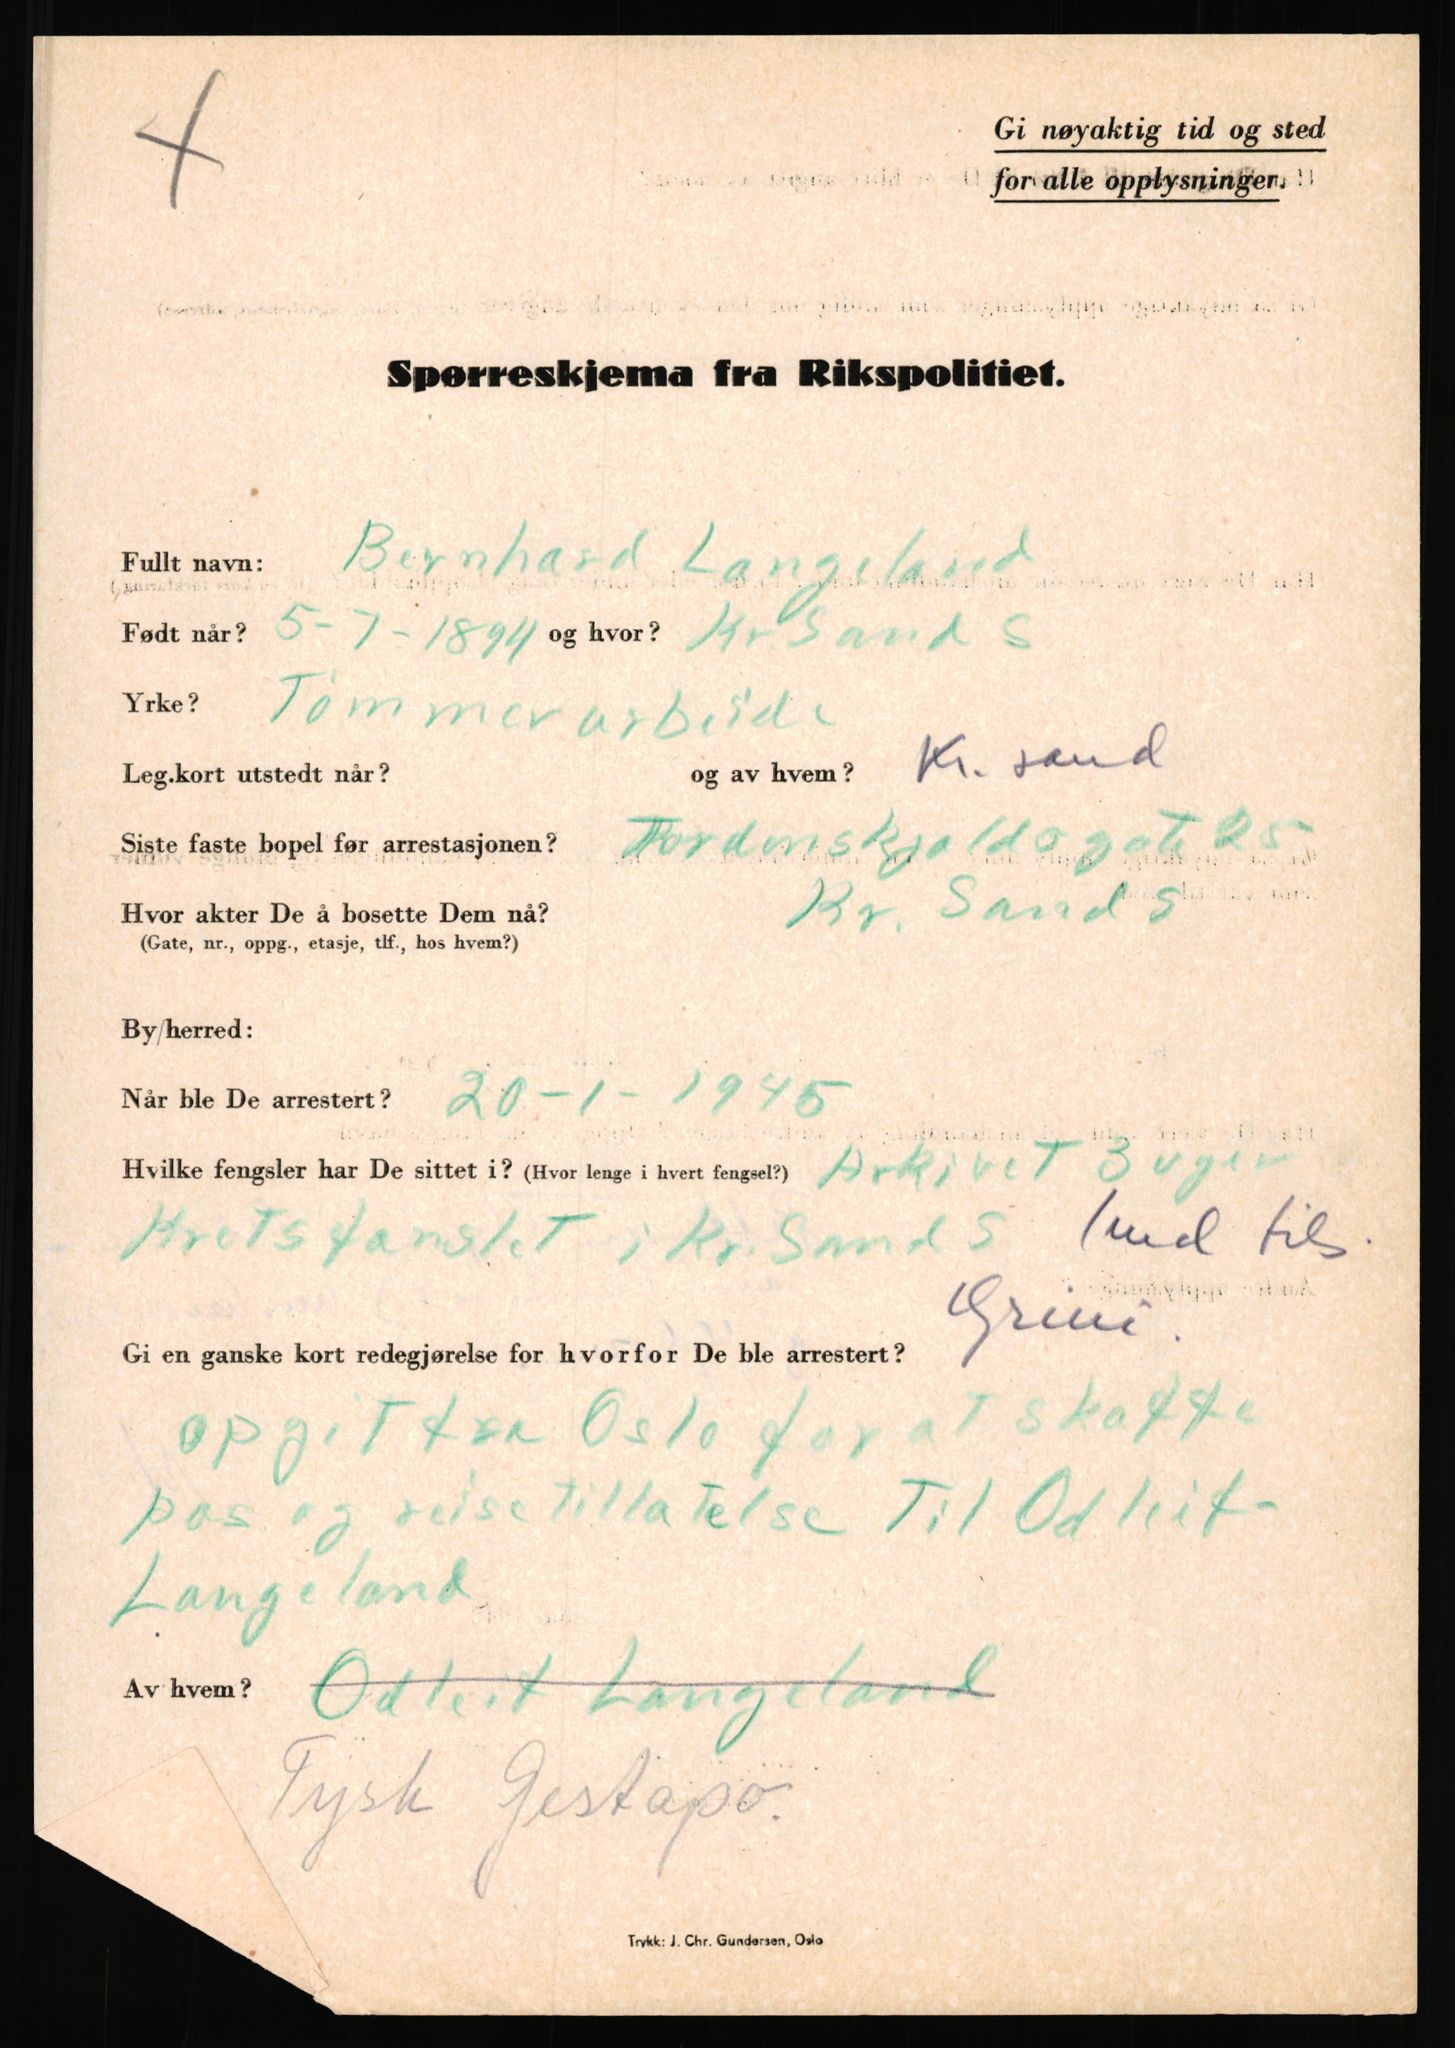 Gi nøyaktig tid og sted
for alle opplysninger.
Spørreskjema fra Rikspolitiet.
Fullt navn: Bernhard Langeland
Født når? 5-7-1894 og hvor? Kr. Sand S
Yrke? Tømmerarbeide
Leg.kort utstedt når? og av hvem? Kr. sand
Siste faste bopel før arrestasjonen? Tordenskjoldsgate 25
Hvor akter De å bosette Dem nå? Kr. Sand S
(Gate, nr., oppg., etasje, tlf., hos hvem?)
By/herred:
Når ble De arrestert? 20-1-1945
Hvilke fengsler har De sittet i? (Hvor lenge i hvert fengsel?) Arkivet 3 uger
Kretsfanslet i Kr. Sand S
Grini.
Gi en ganske kort redegjørelse for hvorfor De ble arrestert?
opgit fra Oslo for at skaffe
pas og reisetillatelse Til Odleif
Langeland
Av hvem? Odleif Langeland
Tysk Gestapo.
Trykk: J. Chr. Gundersen, Oslo